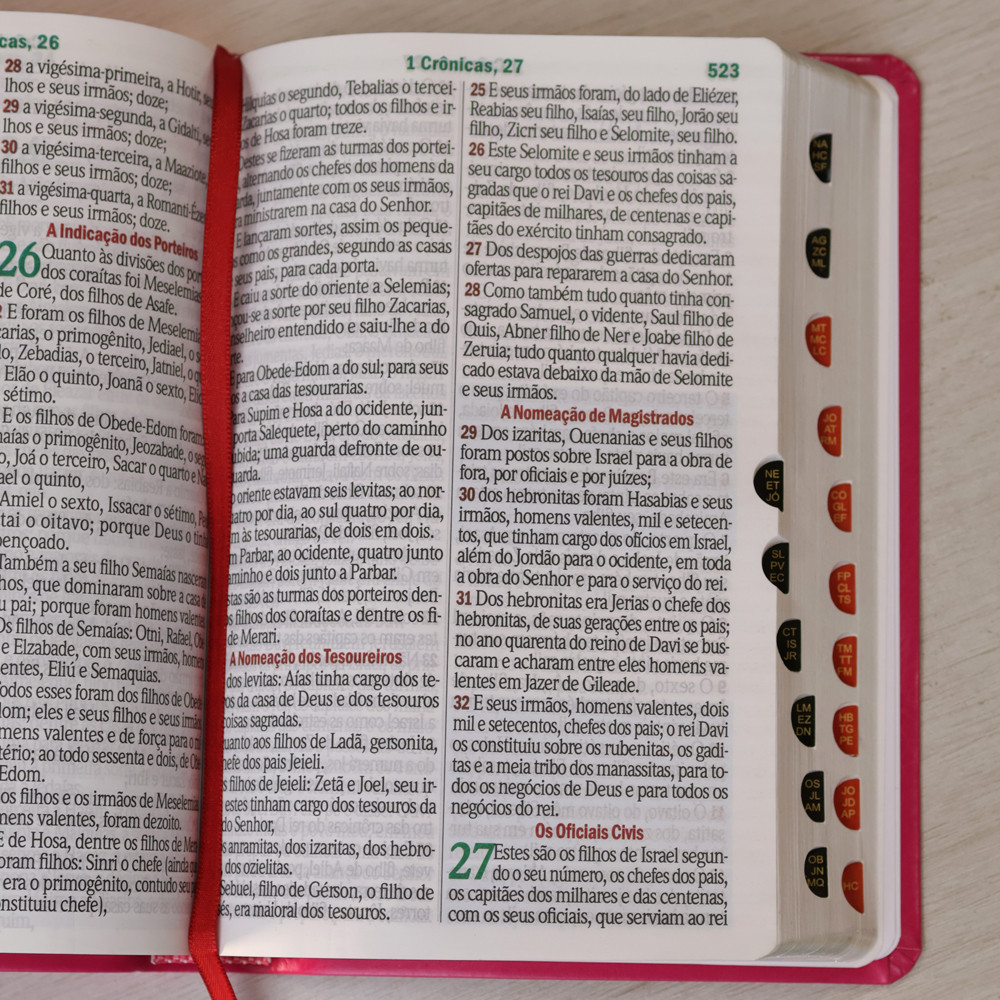 cas, 26
28 a vigésima-primeira, a Hotir,
lhos e seus irmãos; doze;
29 a vigésima-segunda, a Gidalti,
lhos e seus irmãos; doze;
30 a vigésima-terceira, a Maaziote,
filhos e seus irmãos; doze;
31 a vigésima-quarta, a Romanti-Ézer
filhos e seus irmãos; doze.
A Indicação dos Porteiros
26 Quanto às divisões dos por
dos coraítas foi Meselemias
de Coré, dos filhos de Asafe.
E foram os filhos de Meselemi
carias, o primogênito, Jediael, o s
lo, Zebadias, o terceiro, Jatniel, o q
Elão o quinto, Joanã o sexto, Elio
sétimo.
E os filhos de Obede-Edom foram
maías o primogênito, Jeozabade, o seg
o, Joá o terceiro, Sacar o quarto e Na
ael o quinto,
Amiel o sexto, Issacar o sétimo, Pe
tai o oitavo; porque Deus o tinh
bençoado.
Também a seu filho Semaías nasceram
hos, que dominaram sobre a casa de
u pai; porque foram homens valentes
Os filhos de Semaías: Otni, Rafael, Obe
e Elzabade, com seus irmãos, homen
entes, Eliú e Semaquias.
Todos esses foram dos filhos de Obede
dom; eles e seus filhos e seus irmãos
mens valentes e de força para o mi
tério; ao todo sessenta e dois, de Obe
Edom.
os filhos e os irmãos de Meselemi
mens valentes, foram dezoito.
E de Hosa, dentre os filhos de Mera
oram filhos: Sinri o chefe (ainda qu
era o primogênito, contudo seu pai
onstituiu chefe),
1 Crônicas, 27
523
Hilquias o segundo, Tebalias o tercei-
Zacarias o quarto; todos os filhos e ir-
os de Hosa foram treze.
Destes se fizeram as turmas dos portei-
alternando os chefes dos homens da
rda, juntamente com os seus irmãos,
a ministrarem na casa do Senhor.
E lançaram sortes, assim os peque-
como os grandes, segundo as casas
seus pais, para cada porta.
E caiu a sorte do oriente a Selemias;
çou-se a sorte por seu filho Zacarias,
nselheiro entendido e saiu-lhe a do
rte.
E para Obede-Edom a do sul; para seus
os a casa das tesourarias.
Para Supim e Hosa a do ocidente, jun-
porta Salequete, perto do caminho
ubida; uma guarda defronte de ou-
uarda.
o oriente estavam seis levitas; ao nor-
uatro por dia, ao sul quatro por dia,
m às tesourarias, de dois em dois.
m Parbar, ao ocidente, quatro junto
aminho e dois junto a Parbar.
stas são as turmas dos porteiros den-
os filhos dos coraítas e dentre os fi-
de Merari.
A Nomeação dos Tesoureiros
dos levitas: Aías tinha cargo dos te-
os da casa de Deus e dos tesouros
coisas sagradas.
uanto aos filhos de Ladã, gersonita,
hefe dos pais Jeieli.
s filhos de Jeieli: Zetã e Joel, seu ir-
estes tinham cargo dos tesouros da
do Senhor,
s anramitas, dos izaritas, dos hebro-
, dos ozielitas.
Sebuel, filho de Gérson, o filho de
és, era maioral dos tesouros.
25 E seus irmãos foram, do lado de Eliézer,
Reabias seu filho, Isaías, seu filho, Jorão seu
filho, Zicri seu filho e Selomite, seu filho.
26 Este Selomite e seus irmãos tinham a
seu cargo todos os tesouros das coisas sa-
gradas que o rei Davi e os chefes dos pais,
capitães de milhares, de centenas e capi-
tães do exército tinham consagrado.
27 Dos despojos das guerras dedicaram
ofertas para repararem a casa do Senhor.
28 Como também tudo quanto tinha con-
sagrado Samuel, o vidente, Saul filho de
Quis, Abner filho de Ner e Joabe filho de
Zeruia; tudo quanto qualquer havia dedi-
cado estava debaixo da mão de Selomite
e seus irmãos.
A Nomeação de Magistrados
29 Dos izaritas, Quenanias e seus filhos
foram postos sobre Israel para a obra de
fora, por oficiais e por juízes;
30 dos hebronitas foram Hasabias e seus
irmãos, homens valentes, mil e setecen-
tos, que tinham cargo dos ofícios em Israel,
além do Jordão para o ocidente, em toda
a obra do Senhor e para o serviço do rei.
31 Dos hebronitas era Jerias o chefe dos
hebronitas, de suas gerações entre os pais;
no ano quarenta do reino de Davi se bus-
caram e acharam entre eles homens va-
lentes em Jazer de Gileade.
32 E seus irmãos, homens valentes, dois
mil e setecentos, chefes dos pais; o rei Davi
os constituiu sobre os rubenitas, os gadi-
tas e a meia tribo dos manassitas, para to-
dos os negócios de Deus e para todos os
negócios do rei.
Os Oficiais Civis
27 Estes são os filhos de Israel segun-
do o seu número, os chefes dos pais,
os capitães dos milhares e das centenas,
com os seus oficiais, que serviam ao rei
NA
HC
SF
AG
ZC
ML
MT
MC
LC
JO
AT
RM
NE
ET
JÓ
CO
GL
EF
SL
PV
EC
FP
CL
TS
CT
IS
JR
TM
TT
FM
LM
EZ
DN
HB
TG
PE
OS
JL
AM
JO
JD
AP
OB
JN
MQ
HC